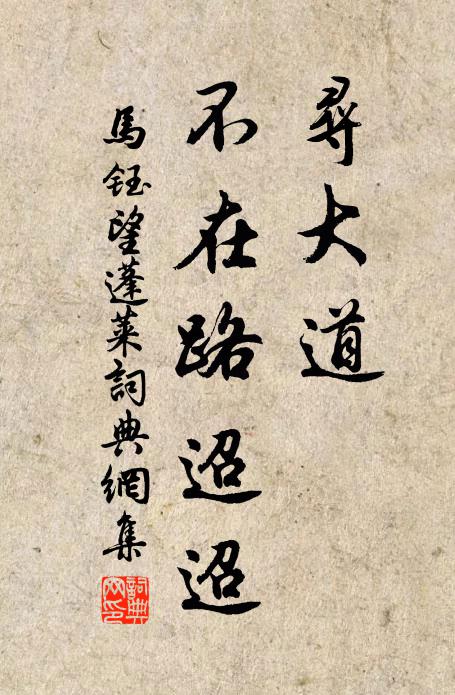 尋大道
不在路迢迢
馬鈺望蓬萊詞典網集
詞典網印